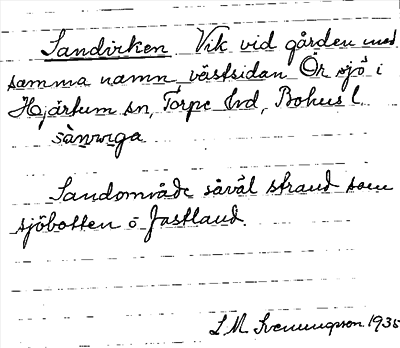 Sandviken Vik vid gården med
samma namn västsidan Örsjö i
Hjärtum sn, Torpe hd, Bohus l.
sànvega
Sandområde såväl strand som
sjöbotten o fastland.
L M Svenungson 1935